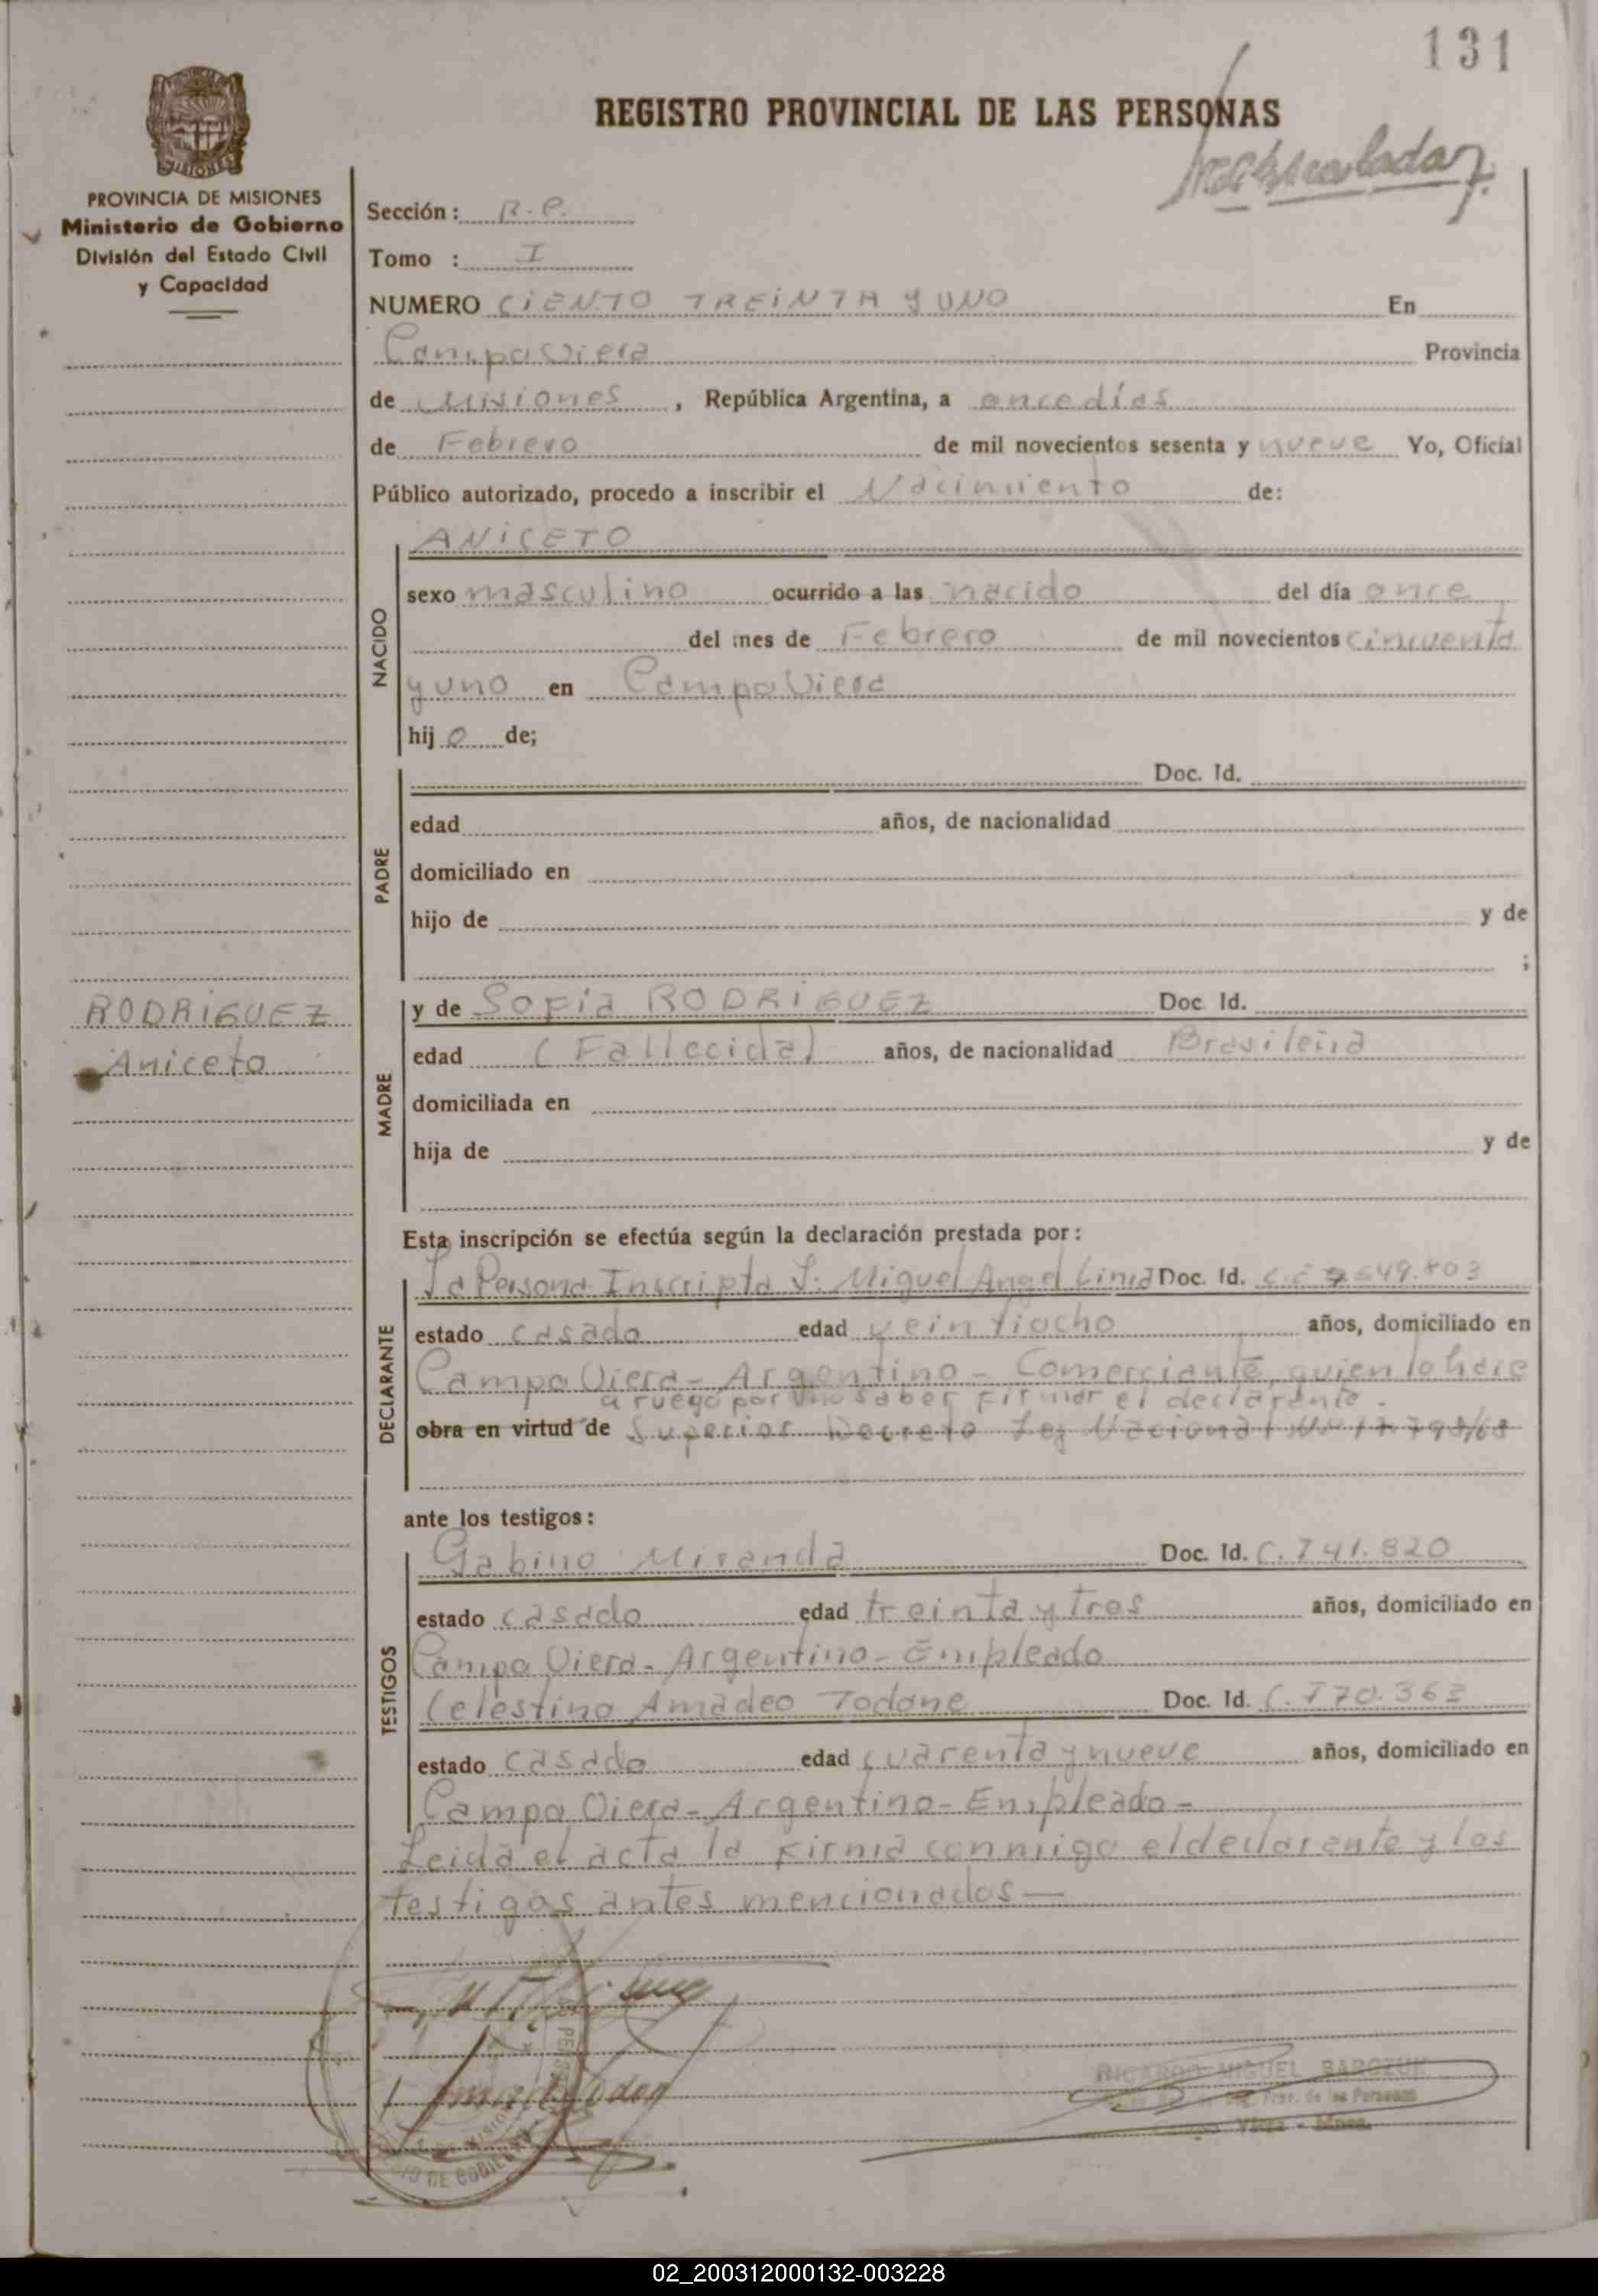 131
REGISTRO PROVINCIAL DE LAS PERSONAS
MISIONES
PROVINCIA DE MISIONES
Ministerio de Gobierno
División del Estado Civil
y Capacidad
Sección: R. P.
Tomo : I
NUMERO CIENTO TREINTA Y UNO En
Campo Viera Provincia
de Misiones, República Argentina, a once días
de Febrero de mil novecientos sesenta y nueve Yo, Oficial
Público autorizado, procedo a inscribir el Nacimiento de:
NACIDO
ANICETO
sexo masculino ocurrido a las nacido del día once
del mes de Febrero de mil novecientos cincuenta
y uno en Campo Viera
hijo de;
PADRE
Doc. Id.
edad años, de nacionalidad
domiciliado en
hijo de y de
;
RODRIGUEZ
Aniceto
MADRE
y de Sofia RODRIGUEZ Doc. Id.
edad (Fallecida) años, de nacionalidad Brasileña
domiciliada en
hija de y de
Esta inscripción se efectúa según la declaración prestada por:
DECLARANTE
La Persona Inscripta Miguel Angel Doc. Id.
estado casado edad veintiocho años, domiciliado en
Campo Viera - Argentino - Comerciante, quien lo hace
a ruego por no saber firmar el declarante.
obra en virtud de Superior Decreto Ley Nacional
ante los testigos:
TESTIGOS
Gabino Miranda Doc. Id. C. 741.820
estado casado edad treinta y tres años, domiciliado en
Campo Viera - Argentino - Empleado
Celestino Amadeo Todone Doc. Id.
estado casado edad cuarenta y nueve años, domiciliado en
Campo Viera - Argentino - Empleado -
Leida el acta la firma conmigo el declarante y los
testigos antes mencionados —
RICARDO MIGUEL
Prov. de las Personas
Campo Viera - Mnes.
02_200312000132-003228